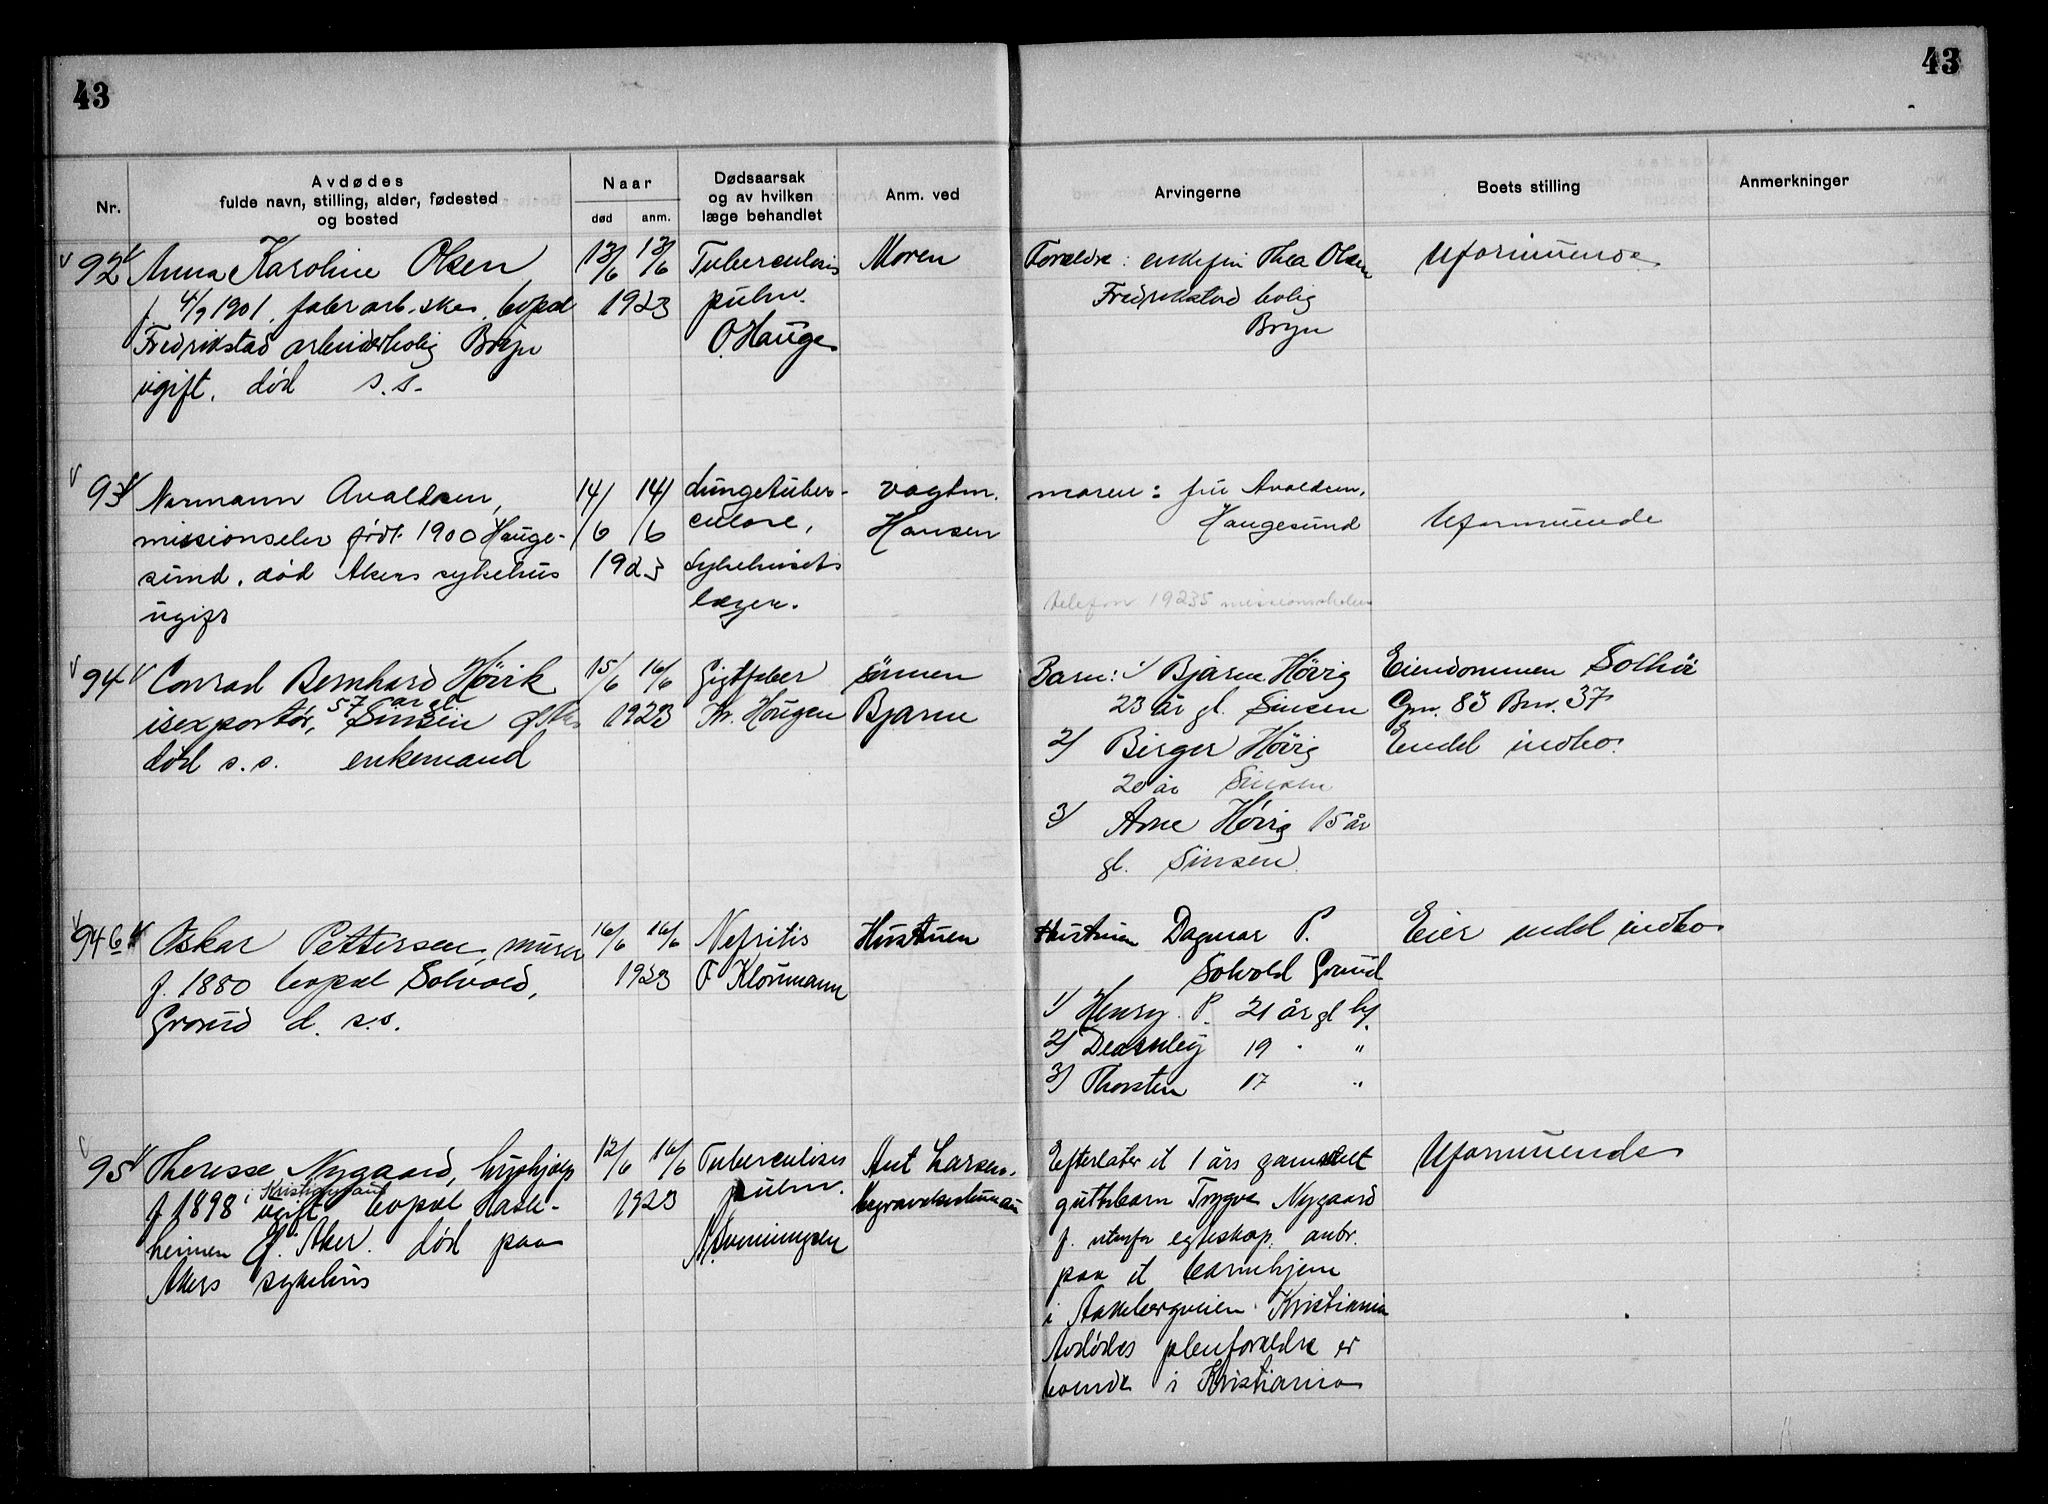 43
43
Nr.
Avdødes
fulde navn, stilling, alder, fødested
og bosted
Naar
død
anm.
Dødsaarsak
og av hvilken
læge behandlet
Anm. ved
Arvingerne
Boets stilling
Anmerkninger
92 Anna Karoline Olsen
f. 4/9 1901. fabr arb. ske. bopæl
Fredrikstad arbeiderbolig Bryn
ugift. død s.s.
13/6 13/6
1923
Tuberculosis
pulm.
O. Hauge
Moren
Forældre: enkefru Thea Olsen
Fredrikstad bolig
Bryn
Uformuende
93 Normann Avaldsen,
missionselev født 1900 Hauge-
sund. død Akers sykehus
ugift
14/6 14/6
1923
Lungetuber-
culose,
Sykehusets
læger.
vagtm.
Hansen
moren: fru Avaldsen,
Haugesund
telefon 19235 missionsskolen
Uformuende
94 Conrad Bernhard Hövik
57 år gl.
isexportör, Sinsen
død s.s. enkemand
15/6 16/6
1923
Gigtfeber
Kr. Hougen
Sönnen
Bjarne
Barn: 1) Bjarne Hövig
23 år gl. Sinsen
2) Birger Hövig
20 år Sinsen
3) Arne Hövig 15 år
gl. Sinsen
Eiendommen Solhöi
Gnr. 83 Bnr. 37
Endel indbo.
94 b Oskar Pettersen, murer
f. 1880 bopæl Solvold,
Grorud d. s.s.
16/6 16/6
1923
Nefritis
F Klöumann
Hustruen
Hustruen Dagmar P.
Solvold Grorud
1) Henry P. 21 år gl. hj.
2) 19 " "
3) Thorsten 17 "
Eier endel indbo
95 Theresse Nygaard, hushjælp
f 1898 i Kristiansand
ugift. bopæl Hasle-
heimen Ø. Aker. død paa
Akers sykehus
12/6 16/6
1923
Tuberculosis
pulm.
N. Svenningsen
Ant Larsen.
begravelsesbureau
Efterlater et 1 års gammelt
guttebarn Trygve Nygaard
f. utenfor egteskap. anbr.
paa et barnehjem
i Aakebergveien Kristiania
Avdødes pleieforældre er
boende i Kristiania
Uformuende